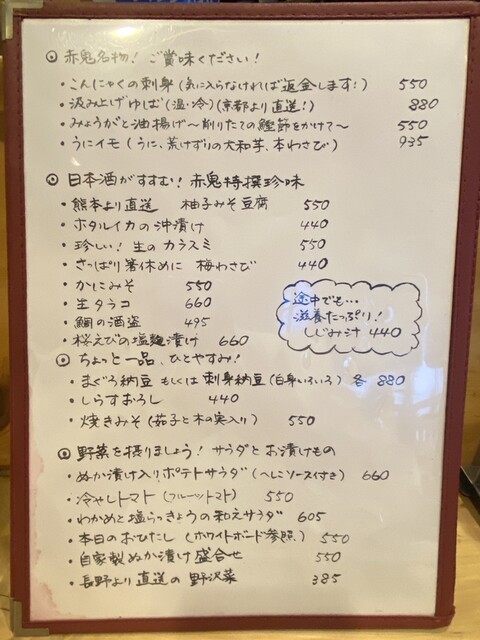 ◎ 赤鬼名物！ご賞味ください！
・こんにゃくの刺身（気に入らなければ返金します！） 550
・汲み上げゆば（温・冷）（京都より直送！） 880
・みょうがと油揚げ〜削りたての鰹節をかけて〜 550
・うにイモ（うに、荒けずりの大和芋、本わさび） 935
◎ 日本酒がすすむ！赤鬼特撰珍味
・熊本より直送 柚子みそ豆腐 550
・ホタルイカの沖漬け 440
・珍しい！生のカラスミ 550
・さっぱり箸休めに 梅わさび 440
・かにみそ 550
・生タラコ 660
・鯛の酒盗 495
・桜えびの塩麹漬け 660
途中でも…
滋養たっぷり！
しじみ汁 440
◎ ちょっと一品、ひとやすみ！
・まぐろ納豆 もしくは 刺身納豆（白身いろいろ）各 880
・しらすおろし 440
・焼きみそ（茄子と木の実入り） 550
◎ 野菜を摂りましょう！サラダとお漬けもの
・ぬか漬け入りポテトサラダ（へしこソース付き） 660
・冷やしトマト（フルーツトマト） 550
・わかめと塩らっきょうの和えサラダ 605
・本日のおひたし（ホワイトボード参照） 550
・自家製ぬか漬け盛合せ 550
・長野より直送の野沢菜 385